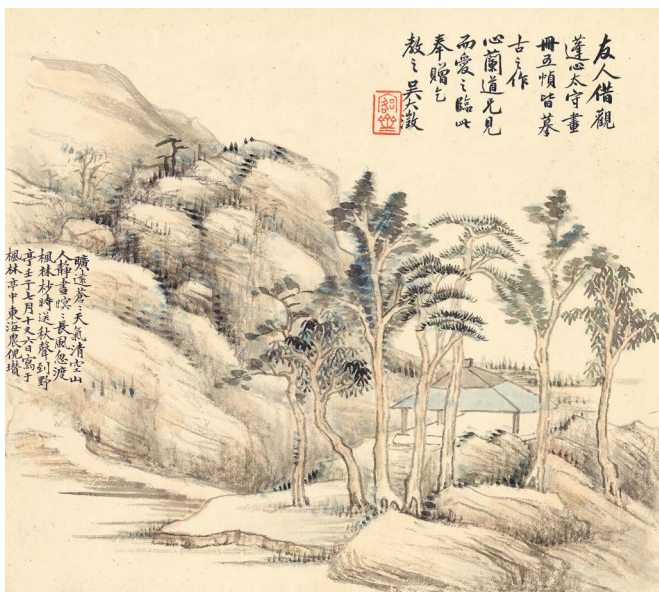 友人借觀
蓬心太守畫
冊五幀皆摹
古之作
心蘭道兄見
而愛之臨此
奉贈乞
教之吳大澂
曠遠蒼〻天氣清空山
人靜晝晥〻長風忽渡
楓林杪時送秋聲到野
亭壬子七月十又六日寫于
楓林亭中東海農倪瓚